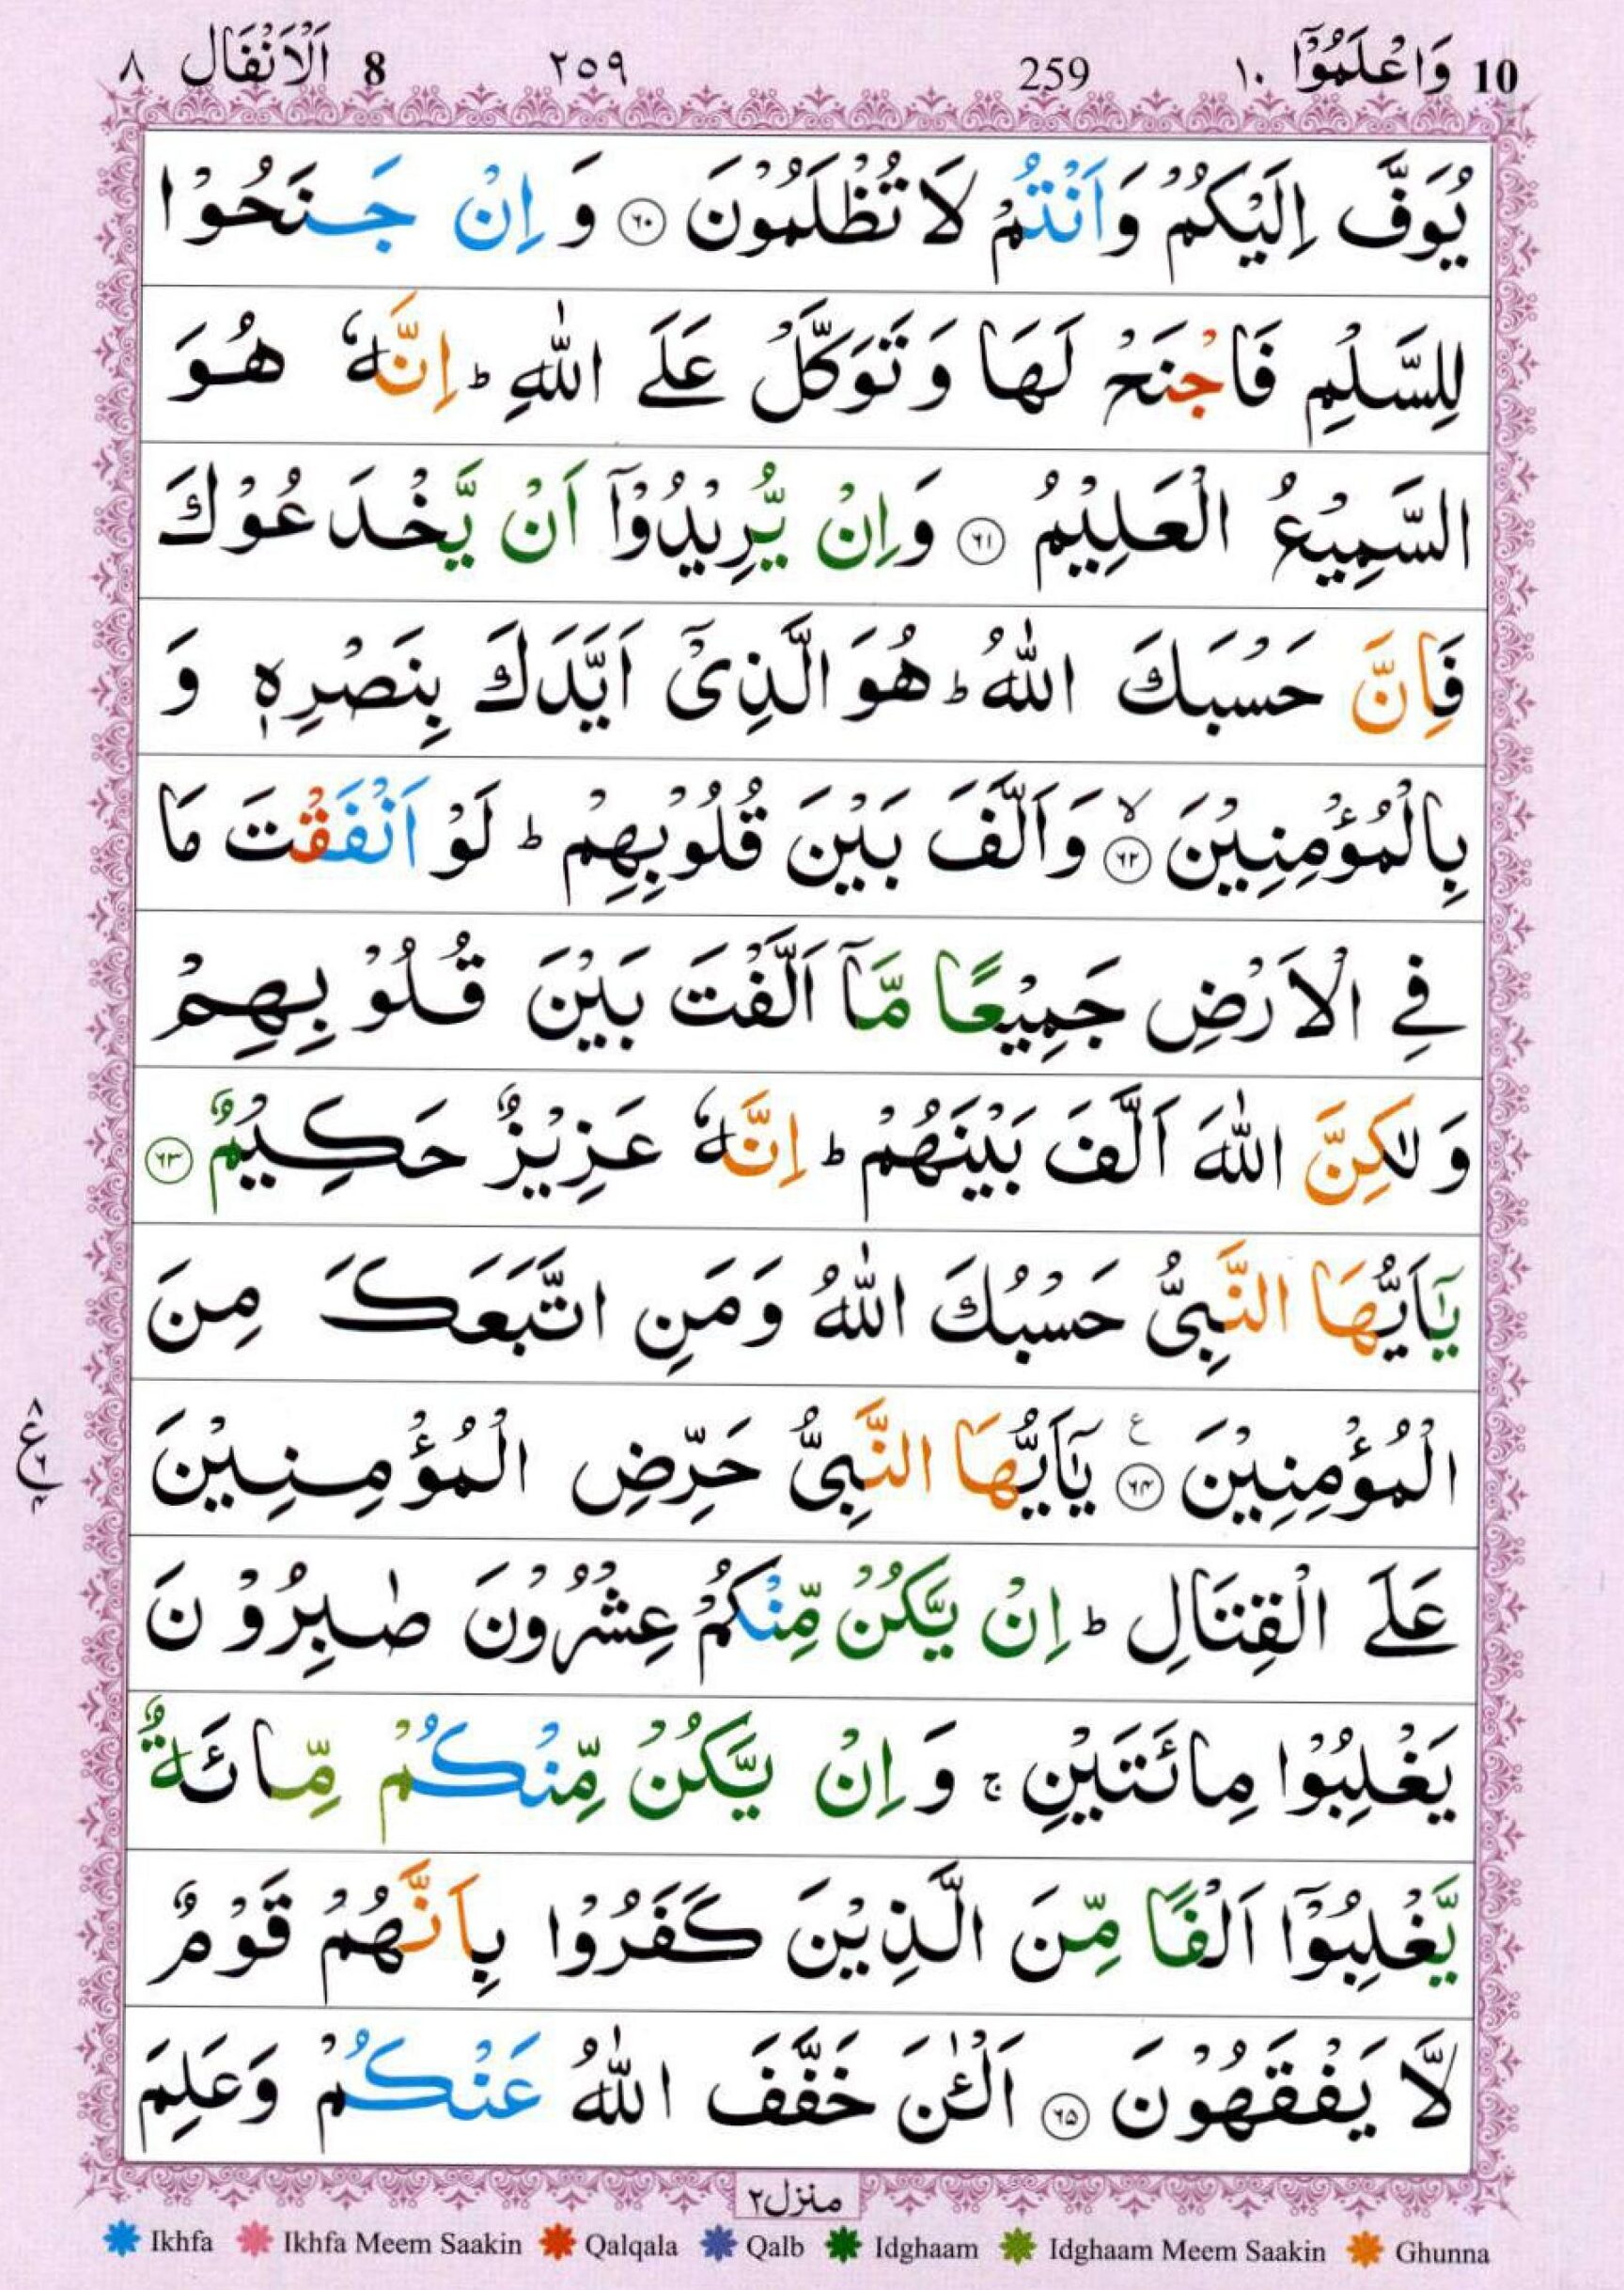 10 وَاعْلَمُوْٓا ١٠ 259 ٢٥٩ 8 اَلْاَنْفَال ٨
يُوَفَّ اِلَيْكُمْ وَاَنْتُمْ لَا تُظْلَمُوْنَ ۝٦٠ وَ اِنْ جَنَحُوْا
لِلسَّلْمِ فَاجْنَحْ لَهَا وَ تَوَكَّلْ عَلَى اللّٰهِ ؕ اِنَّهٗ هُوَ
السَّمِيْعُ الْعَلِيْمُ ۝٦١ وَاِنْ يُّرِيْدُوْٓا اَنْ يَّخْدَعُوْكَ
فَاِنَّ حَسْبَكَ اللّٰهُ ؕ هُوَ الَّذِىْٓ اَيَّدَكَ بِنَصْرِهٖ وَ
بِالْمُؤْمِنِيْنَ ۙ۝٦٢ وَاَلَّفَ بَيْنَ قُلُوْبِهِمْ ؕ لَوْ اَنْفَقْتَ مَا
فِى الْاَرْضِ جَمِيْعًا مَّآ اَلَّفْتَ بَيْنَ قُلُوْبِهِمْ
وَ لٰكِنَّ اللّٰهَ اَلَّفَ بَيْنَهُمْ ؕ اِنَّهٗ عَزِيْزٌ حَكِيْمٌ ۝٦٣
يٰۤاَيُّهَا النَّبِىُّ حَسْبُكَ اللّٰهُ وَمَنِ اتَّبَعَكَ مِنَ
الْمُؤْمِنِيْنَ ۧ۝٦٤ يٰۤاَيُّهَا النَّبِىُّ حَرِّضِ الْمُؤْمِنِيْنَ
عَلَى الْقِتَالِ ؕ اِنْ يَّكُنْ مِّنْكُمْ عِشْرُوْنَ صٰبِرُوْنَ
يَغْلِبُوْا مِائَتَيْنِ ۚ وَ اِنْ يَّكُنْ مِّنْكُمْ مِّائَةٌ
يَّغْلِبُوْٓا اَلْفًا مِّنَ الَّذِيْنَ كَفَرُوْا بِاَنَّهُمْ قَوْمٌ
لَّا يَفْقَهُوْنَ ۝٦٥ اَلْـٰٔنَ خَفَّفَ اللّٰهُ عَنْكُمْ وَعَلِمَ
منزل٢
Ikhfa Ikhfa Meem Saakin Qalqala Qalb Idghaam Idghaam Meem Saakin Ghunna